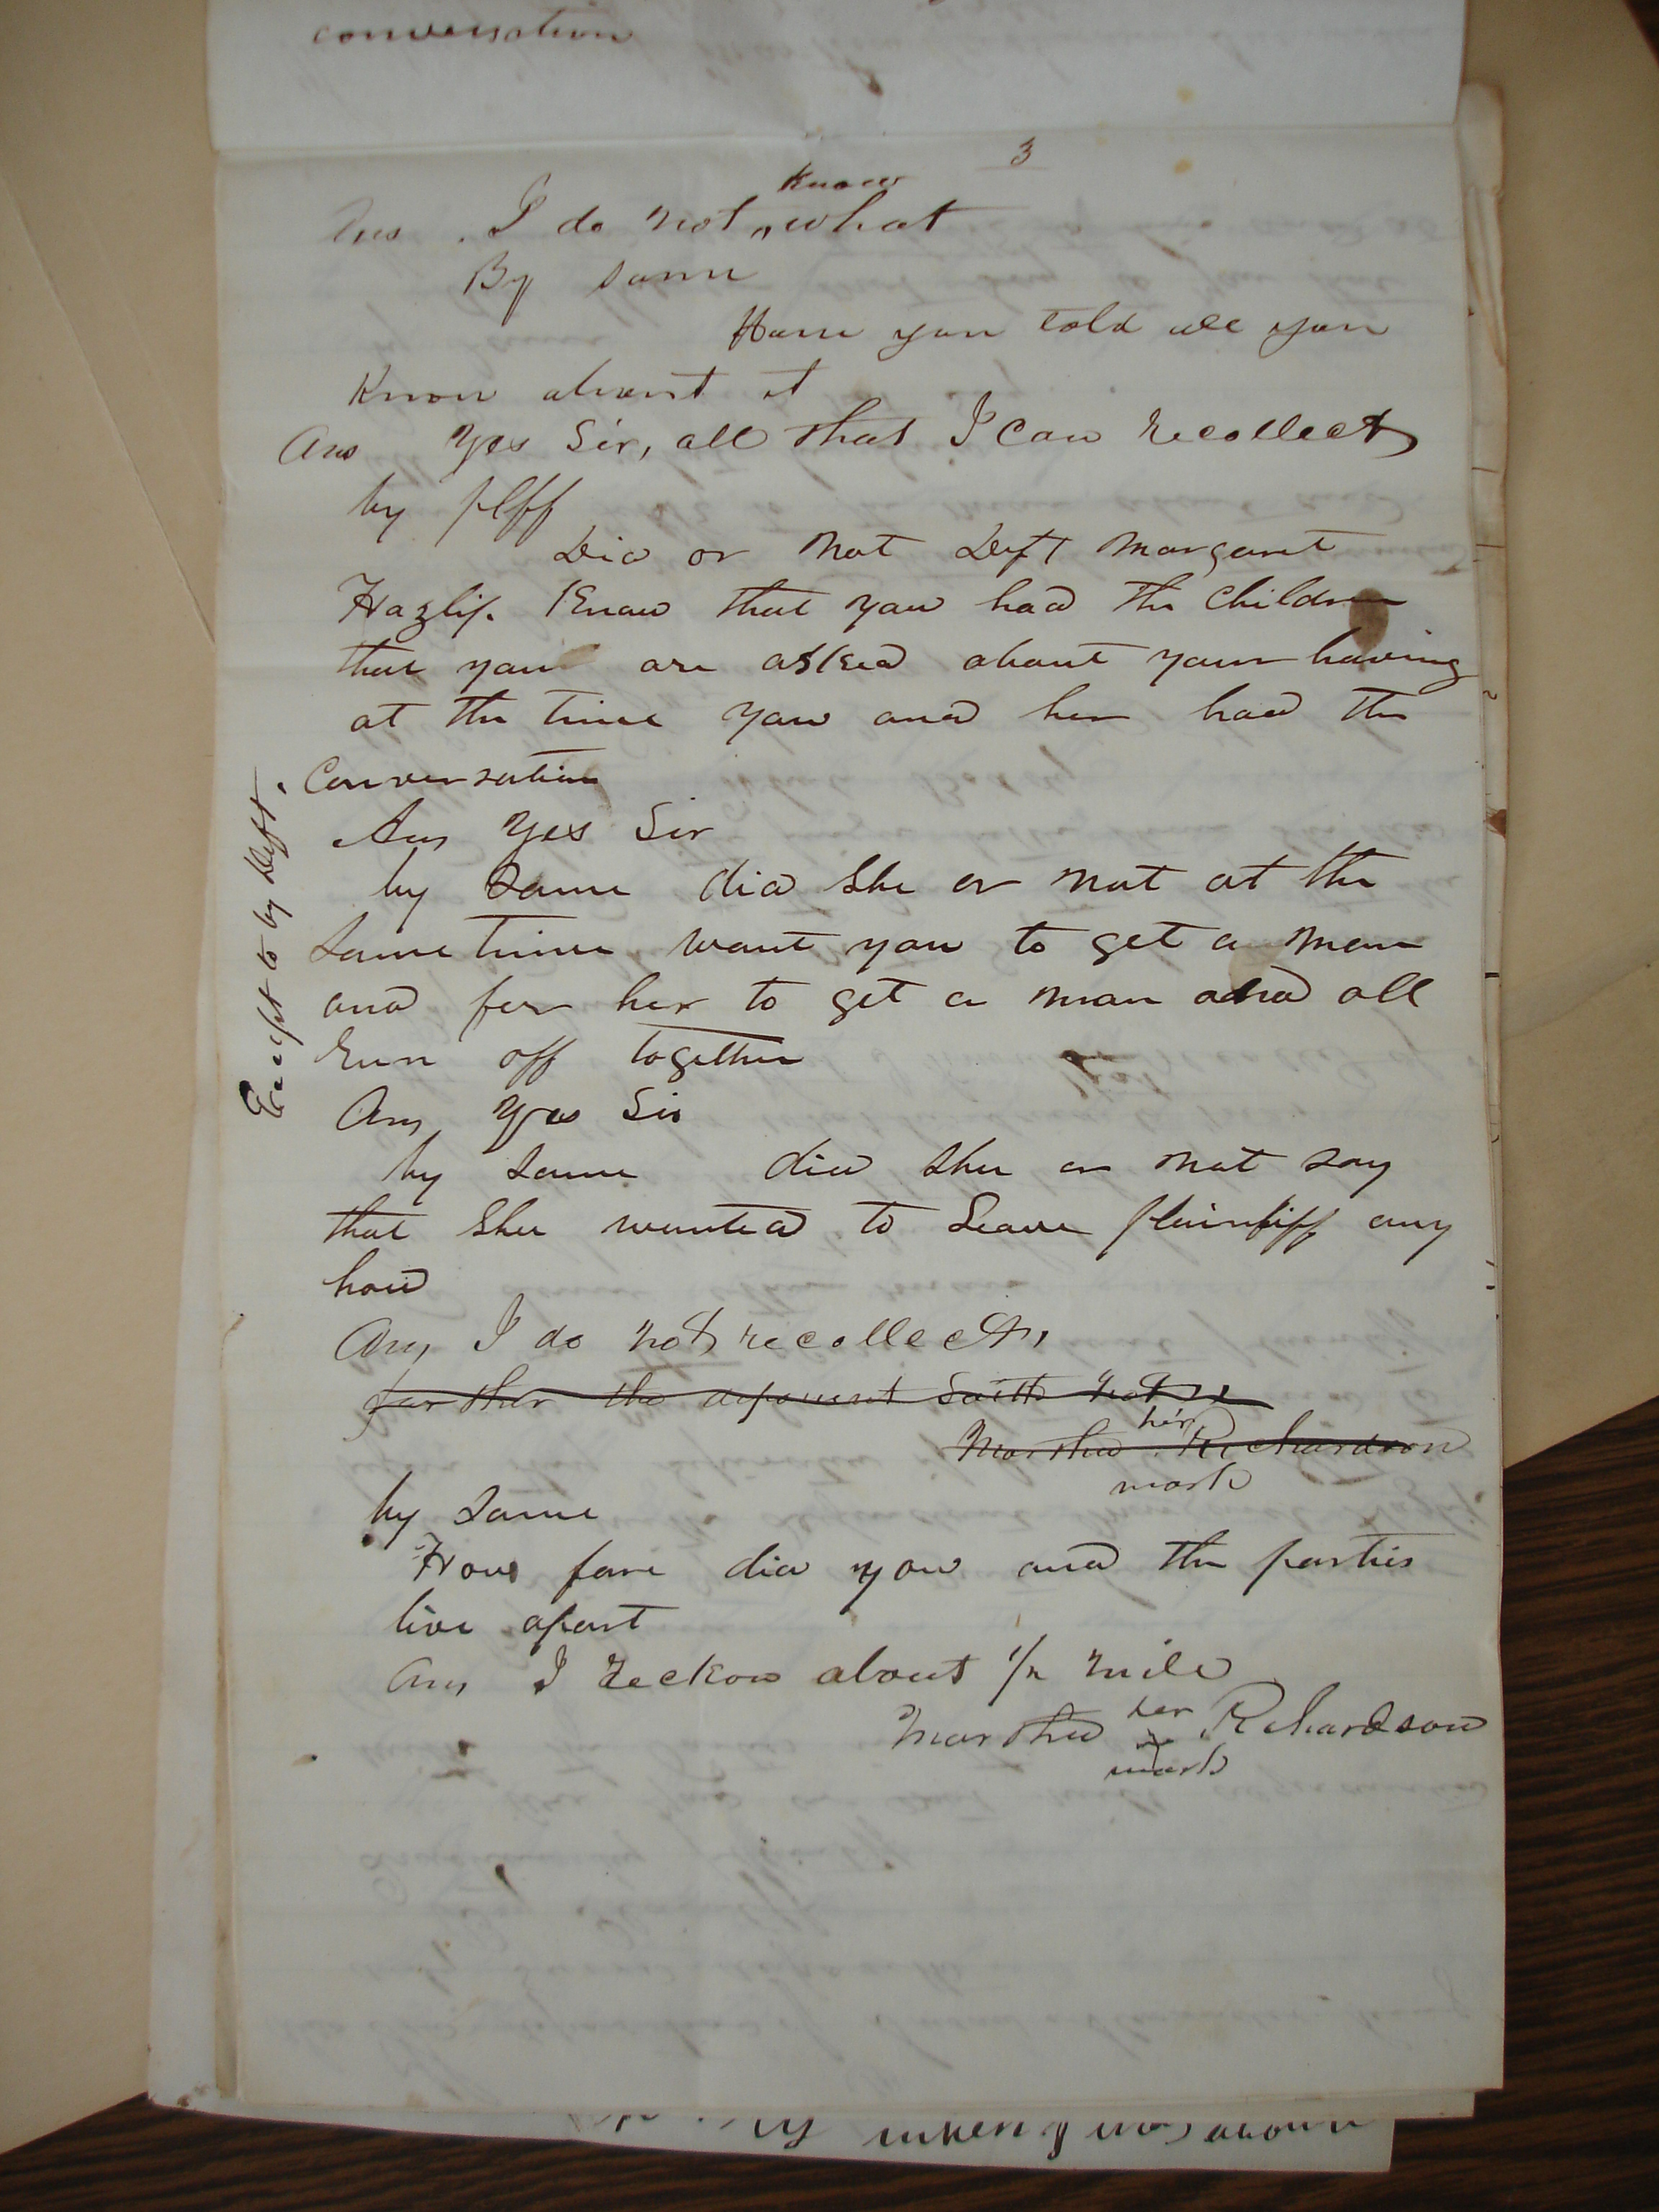 conversation
3
know
Ans . I do not ‸ what
By same
Have you told all you
Know about it
Ans Yes Sir, all that I Can recollect
by plff
Did or not Deft Margaret
Hazlip. Know that you had the children
that you are asked about your having
at the time you and her had the
Conversation
Ans Yes Sir
by Same did she or not at the
Same time want you to get a man
and for her to get a man and all
run off together
Ans Yes Sir
by Same did she or not say
that she wanted to Leave plaintiff any
how
Ans I do not recollect,
further the deponent saith not
her
Martha Richardson
mark
by Same
How fare did you and the parties
live apart
Ans I reckon about 1/2 mile
Martha her x Richardson
mark
Except to by Deft.